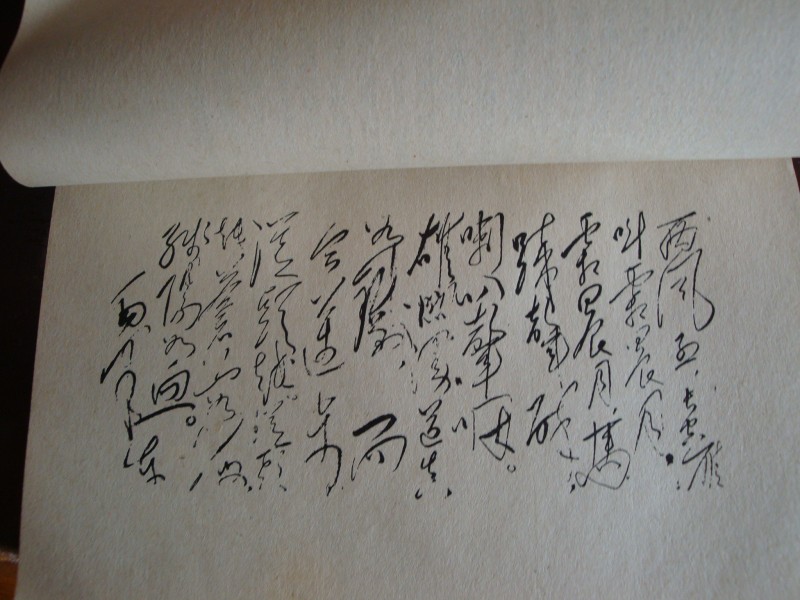 西風烈,長空雁
叫霜晨月。
霜晨月,馬
蹄聲碎,
喇叭聲咽。
雄關漫道真
如鐵,而
今邁步
從頭越。從頭
越,蒼山如海,
殘陽如血。
毛澤東